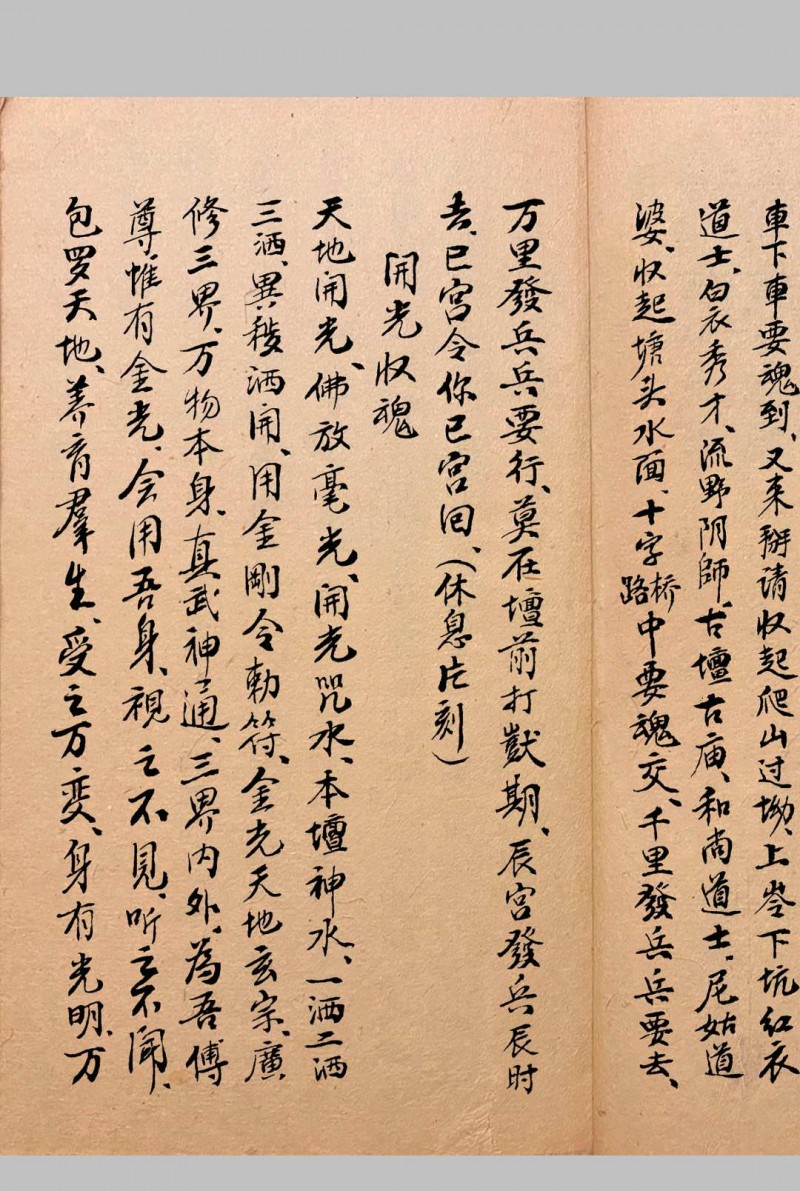 車下車要魂到、又来掰请收起爬山过坳、上岺下坑红衣
道士、白衣秀才、流野阴師、古壇古庙、和尚道士、尼姑道
婆、收起塘头水面、十字路桥中要魂交、千里發兵兵要去、
万里發兵兵要行、莫在壇前打獃期、辰宫發兵辰时
去、巳宫令你巳宫回、(休息片刻)
開光收魂
天地開光、佛放毫光、開光咒水、本壇神水、一洒二洒
三洒、異穢洒開、用金剛令勅符、金光天地玄宗、廣
修三界、万物本身、真武神通、三界内外、為吾傅
尊惟有金光、会用吾身、視之不見、听之不闻、
包罗天地、养育羣生、受之万变、身有光明、万